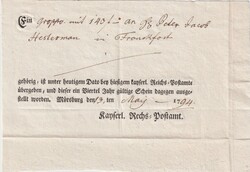 Ein groppo mit 143 f an Hr Peter Jacob
Hesterman in Franckfort
gehörig, ist unter heutigem Dato bey hiesigem kayserl. Reichs-Postamte
übergeben, und dieser ein Viertel Jahr gültige Schein dagegen ausge-
stellt worden. Mörsburg den 13 ten May 1794.
Kayserl. Reichs-Postamt.